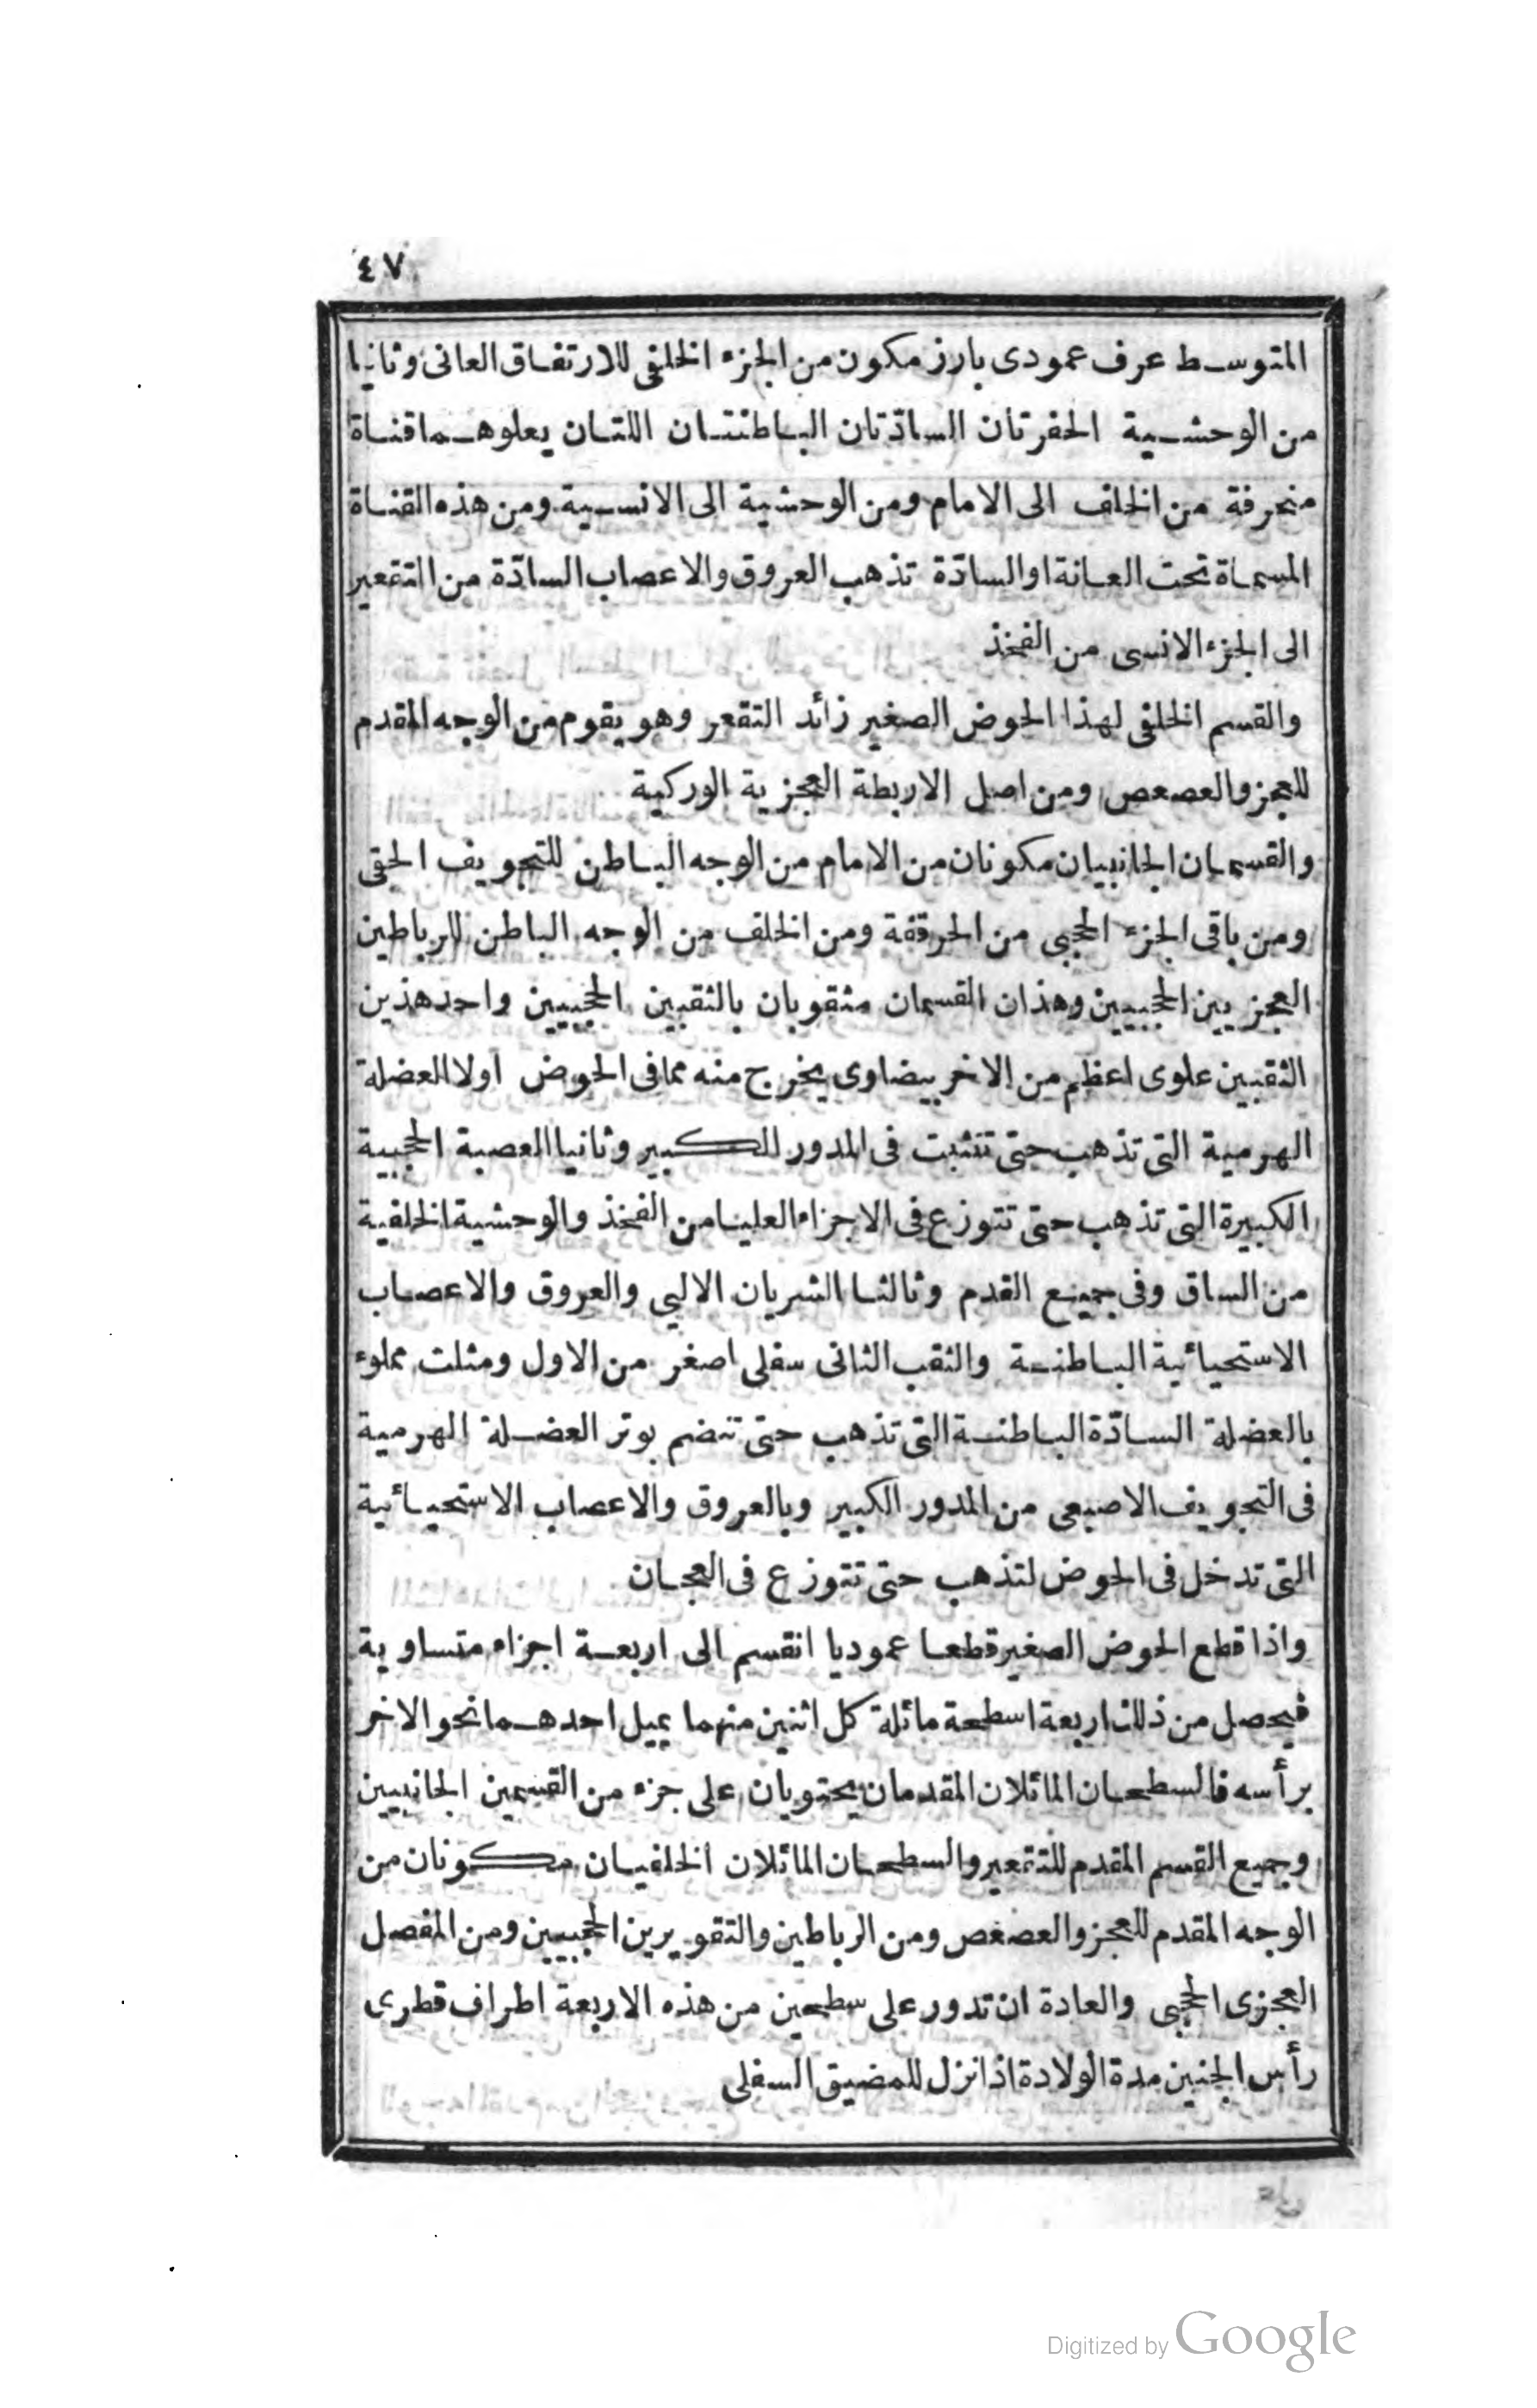 ٤٧
المتوسط عرف عمودى بارز مكون من الجزء الخلفى للارتفاق العانى وثانيا
من الوحشية الحفرتان السادّتان الباطنتان اللتان يعلوهما قناة
منحرفة من الخلف الى الامام ومن الوحشية الى الانسية ومن هذه القناة
المسماة تحت العانة او السادّة تذهب العروق والاعصاب السادّة من التقعير
الى الجزء الانسى من الفخذ
والقسم الخلفى لهذا الحوض الصغير زائد التقعر وهو يقوم من الوجه المقدم
للعجز والعصعص ومن اصل الاربطة العجزية الوركية
والقسمان الجانبيان مكونان من الامام من الوجه الباطن للتجويف الحقى
ومن باقى الجزء الحجبى من الحرقفة ومن الخلف من الوجه الباطن للرباطين
العجزيين الحجبيين وهذان القسمان مثقوبان بالثقبين الحجبيين واحد هذين
الثقبين علوى اعظم من الاخر بيضاوى يخرج منه مما فى الحوض اولا العضلة
الهرمية التى تذهب حتى تنثبت فى المدور الكبير وثانيا العصبة الحجبية
الكبيرة التى تذهب حتى تتوزع فى الاجزاء العليا من الفخذ والوحشية الخلفية
من الساق وفى جميع القدم وثالثا الشريان الالى والعروق والاعصاب
الاستحيائية الباطنة والثقب الثانى سفلى اصغر من الاول ومثلت مملوء
بالعضلة السادّة الباطنة التى تذهب حتى تنضم بوتر العضلة الهرمية
فى التجويف الاصبعى من المدور الكبير وبالعروق والاعصاب الاستحيائية
التى تدخل فى الحوض لتذهب حتى تتوزع فى العجان
واذا قطع الحوض الصغير قطعا عموديا انقسم الى اربعة اجزاء متساوية
فيحصل من ذلك اربعة اسطحة مائلة كل اثنين منهما يميل احدهما نحو الاخر
برأسه فالسطحان المائلان المقدمان يحتويان على جزء من القسمين الجانبيين
وجميع القسم المقدم للتقعير والسطحان المائلان الخلفيان مكونان من
الوجه المقدم للعجز والعصغص ومن الرباطين والتقويرين الحجبيين ومن المفصل
العجزى الحجبى والعادة ان تدور على سطحين من هذه الاربعة اطراف قطرى
رأس الجنين مدة الولادة اذا نزل للمضيق السفلى
Digitized by Google